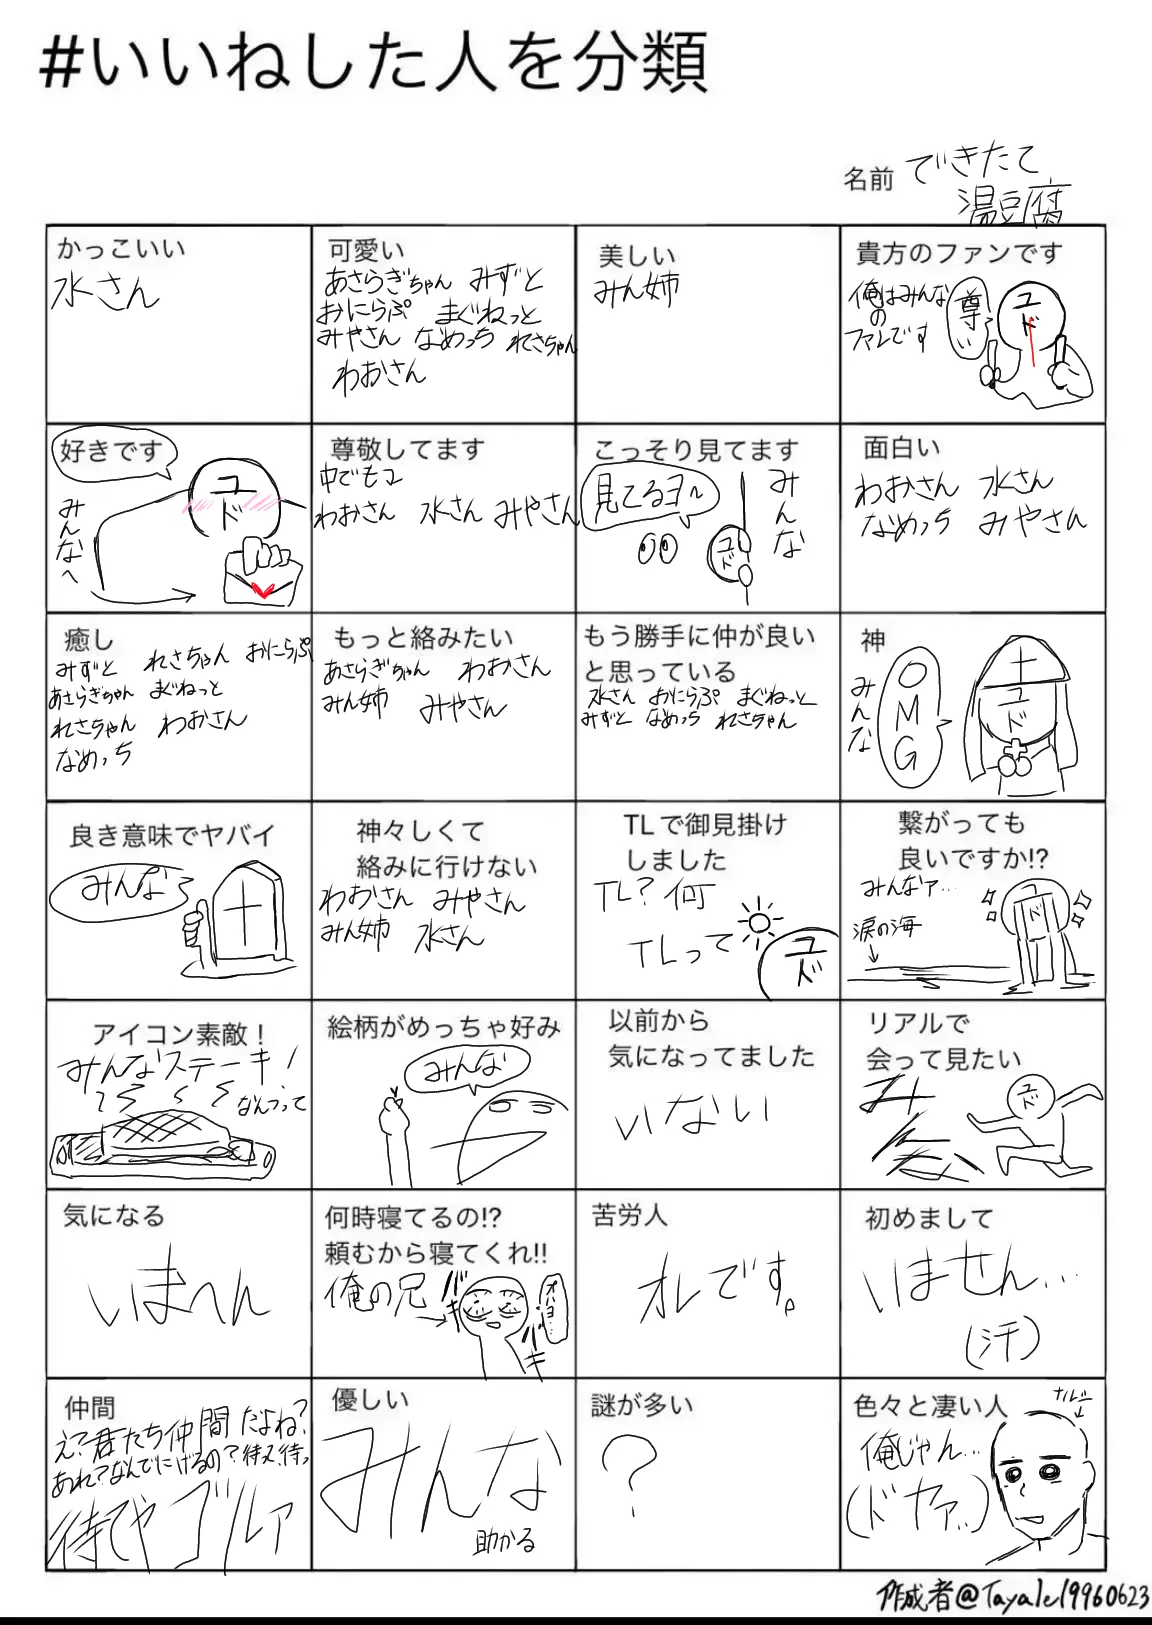 #いいねした人を分類
名前 できたて
湯豆腐
かっこいい
水さん
可愛い
あさらぎちゃん みずと
おにらぷ まぐねっと
みやさん なめっち れさちゃん
わおさん
美しい
みん姉
貴方のファンです
俺はみんな
の
ファンです
尊い
ユド
好きです
みんなへ
ユド
尊敬してます
中でもコ
わおさん 水さん みやさん
こっそり見てます
見てるヨ〜
みんな
ユド
面白い
わおさん 水さん
なめっち みやさん
癒し
みずと れさちゃん おにらぷ
あさらぎちゃん まぐねっと
れさちゃん わおさん
なめっち
もっと絡みたい
あさらぎちゃん わおさん
みん姉 みやさん
もう勝手に仲が良い
と思っている
水さん おにらぷ まぐねっと
みずと なめっち れさちゃん
神
みんな
OMG
ユド
良き意味でヤバイ
みんな
神々しくて
絡みに行けない
わおさん みやさん
みん姉 水さん
TLで御見掛け
しました
TL?何
TLって
ユド
繋がっても
良いですか!?
みんなァ…
涙の海
ユド
アイコン素敵！
みんなステーキ！
なんつって
絵柄がめっちゃ好み
みんな
以前から
気になってました
いない
リアルで
会って見たい
み
ユド
気になる
いまへん
何時寝てるの!?
頼むから寝てくれ!!
俺の兄
バキ
バキ
オハヨ…
苦労人
オレです。
初めまして
いません…
(汗)
仲間
え?君たち仲間だよね?
あれ?なんでにげるの?待て待っ
待てやゴルァ
優しい
みんな
助かる
謎が多い
?
色々と凄い人
俺じゃん…
(ドヤァ..)
作成者@Tayale19960623